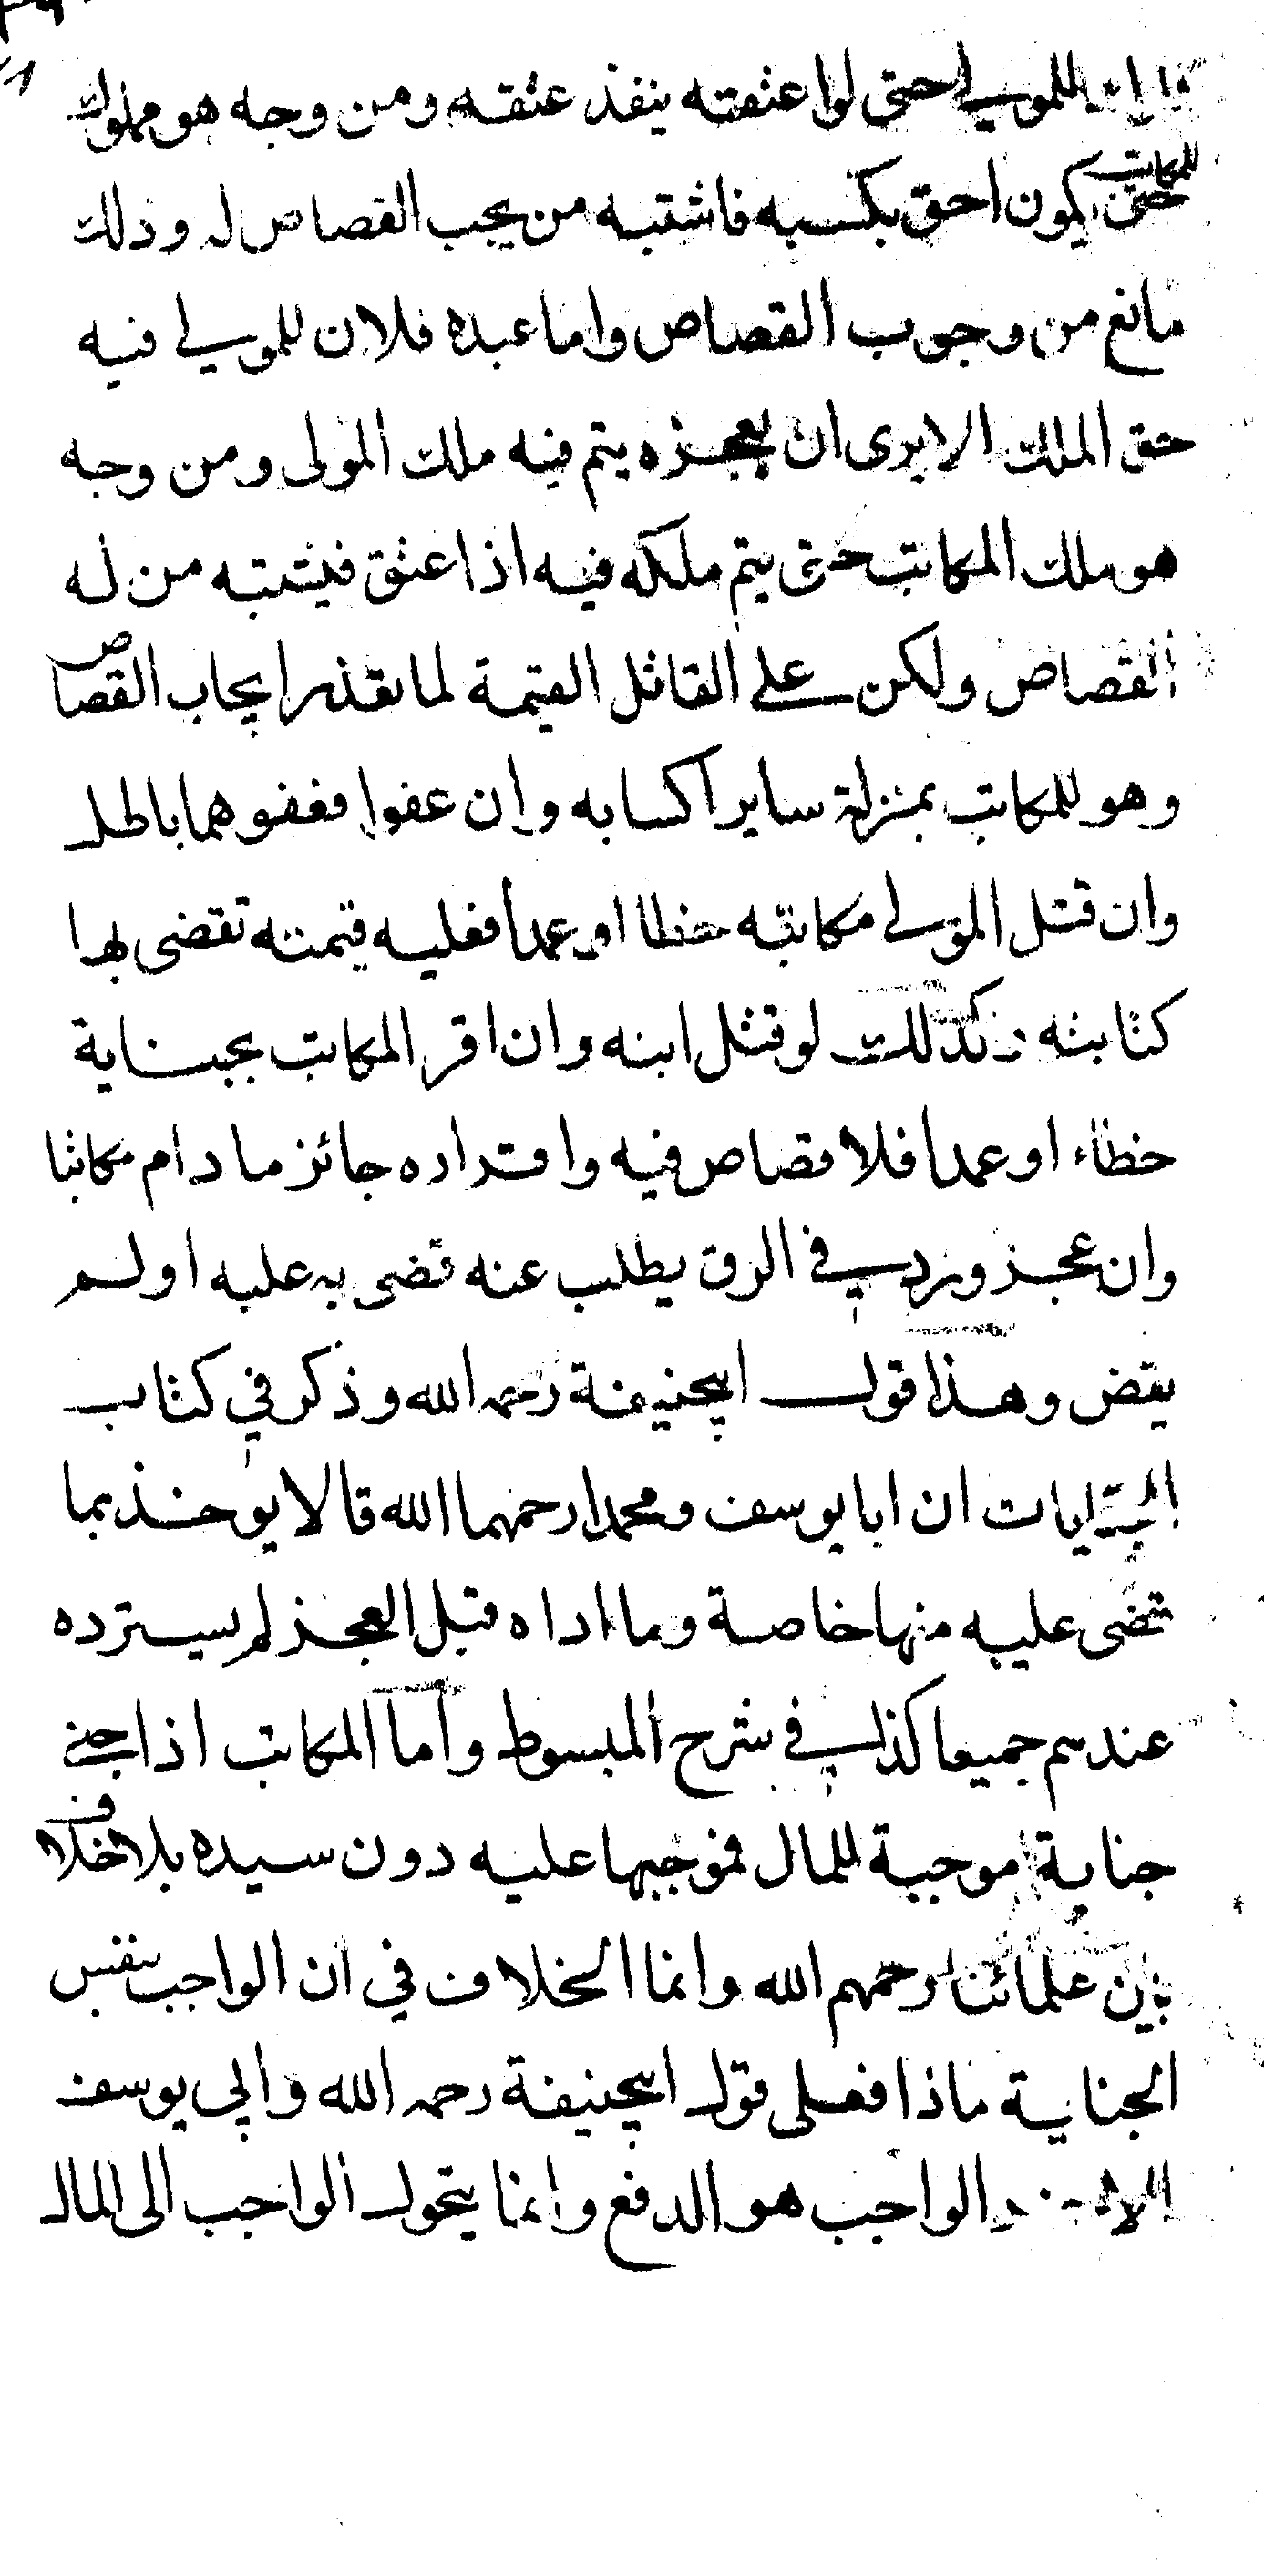 للمولى حتى لو اعتقته ينفذ عتقه ومن وجه هو مملوك
للمكاتب حتى يكون احق بكسبه فاشتبه من يجب القصاص له وذلك
مانع من وجوب القصاص واما عبده فلان للمولى فيه
حق الملك الا يرى ان بعجزه يتم فيه ملك المولى ومن وجه
هو ملك المكاتب حتى يتم ملكه فيه اذا عتق فيشتبه من له
القصاص ولكن على القاتل القيمة لما تعذر ايجاب القصاص
وهو للمكاتب بمنزلة ساير اكسابه وان عفوا فعفوهما باطل
وان قتل المولى مكاتبه خطا او عمدا فعليه قيمته تقضى بها
كتابته وكذلك لو قتل ابنه وان اقر المكاتب بجناية
خطاء او عمدا فلا قصاص فيه واقراره جائز ما دام مكاتبا
وان عجز ورد في الرق يطلب عنه قضى به عليه او لم
يقض وهذا قول ابيحنيفة رحمه الله وذكر في كتاب
الجنايات ان ابا يوسف ومحمدا رحمهما الله قالا يوخذ بما
قضى عليه منها خاصة وما اداه قبل العجز لم يسترده
عندهم جميعا كذا في شرح المبسوط واما المكاتب اذا جنى
جناية موجبة للمال فموجبها عليه دون سيده بلا خلاف
بين علمائنا رحمهم الله وانما الخلاف في ان الواجب بنفس
الجناية ماذا فعلى قول ابيحنيفة رحمه الله وابي يوسف
الواجب هو الدفع وانما يتحول الواجب الى المال